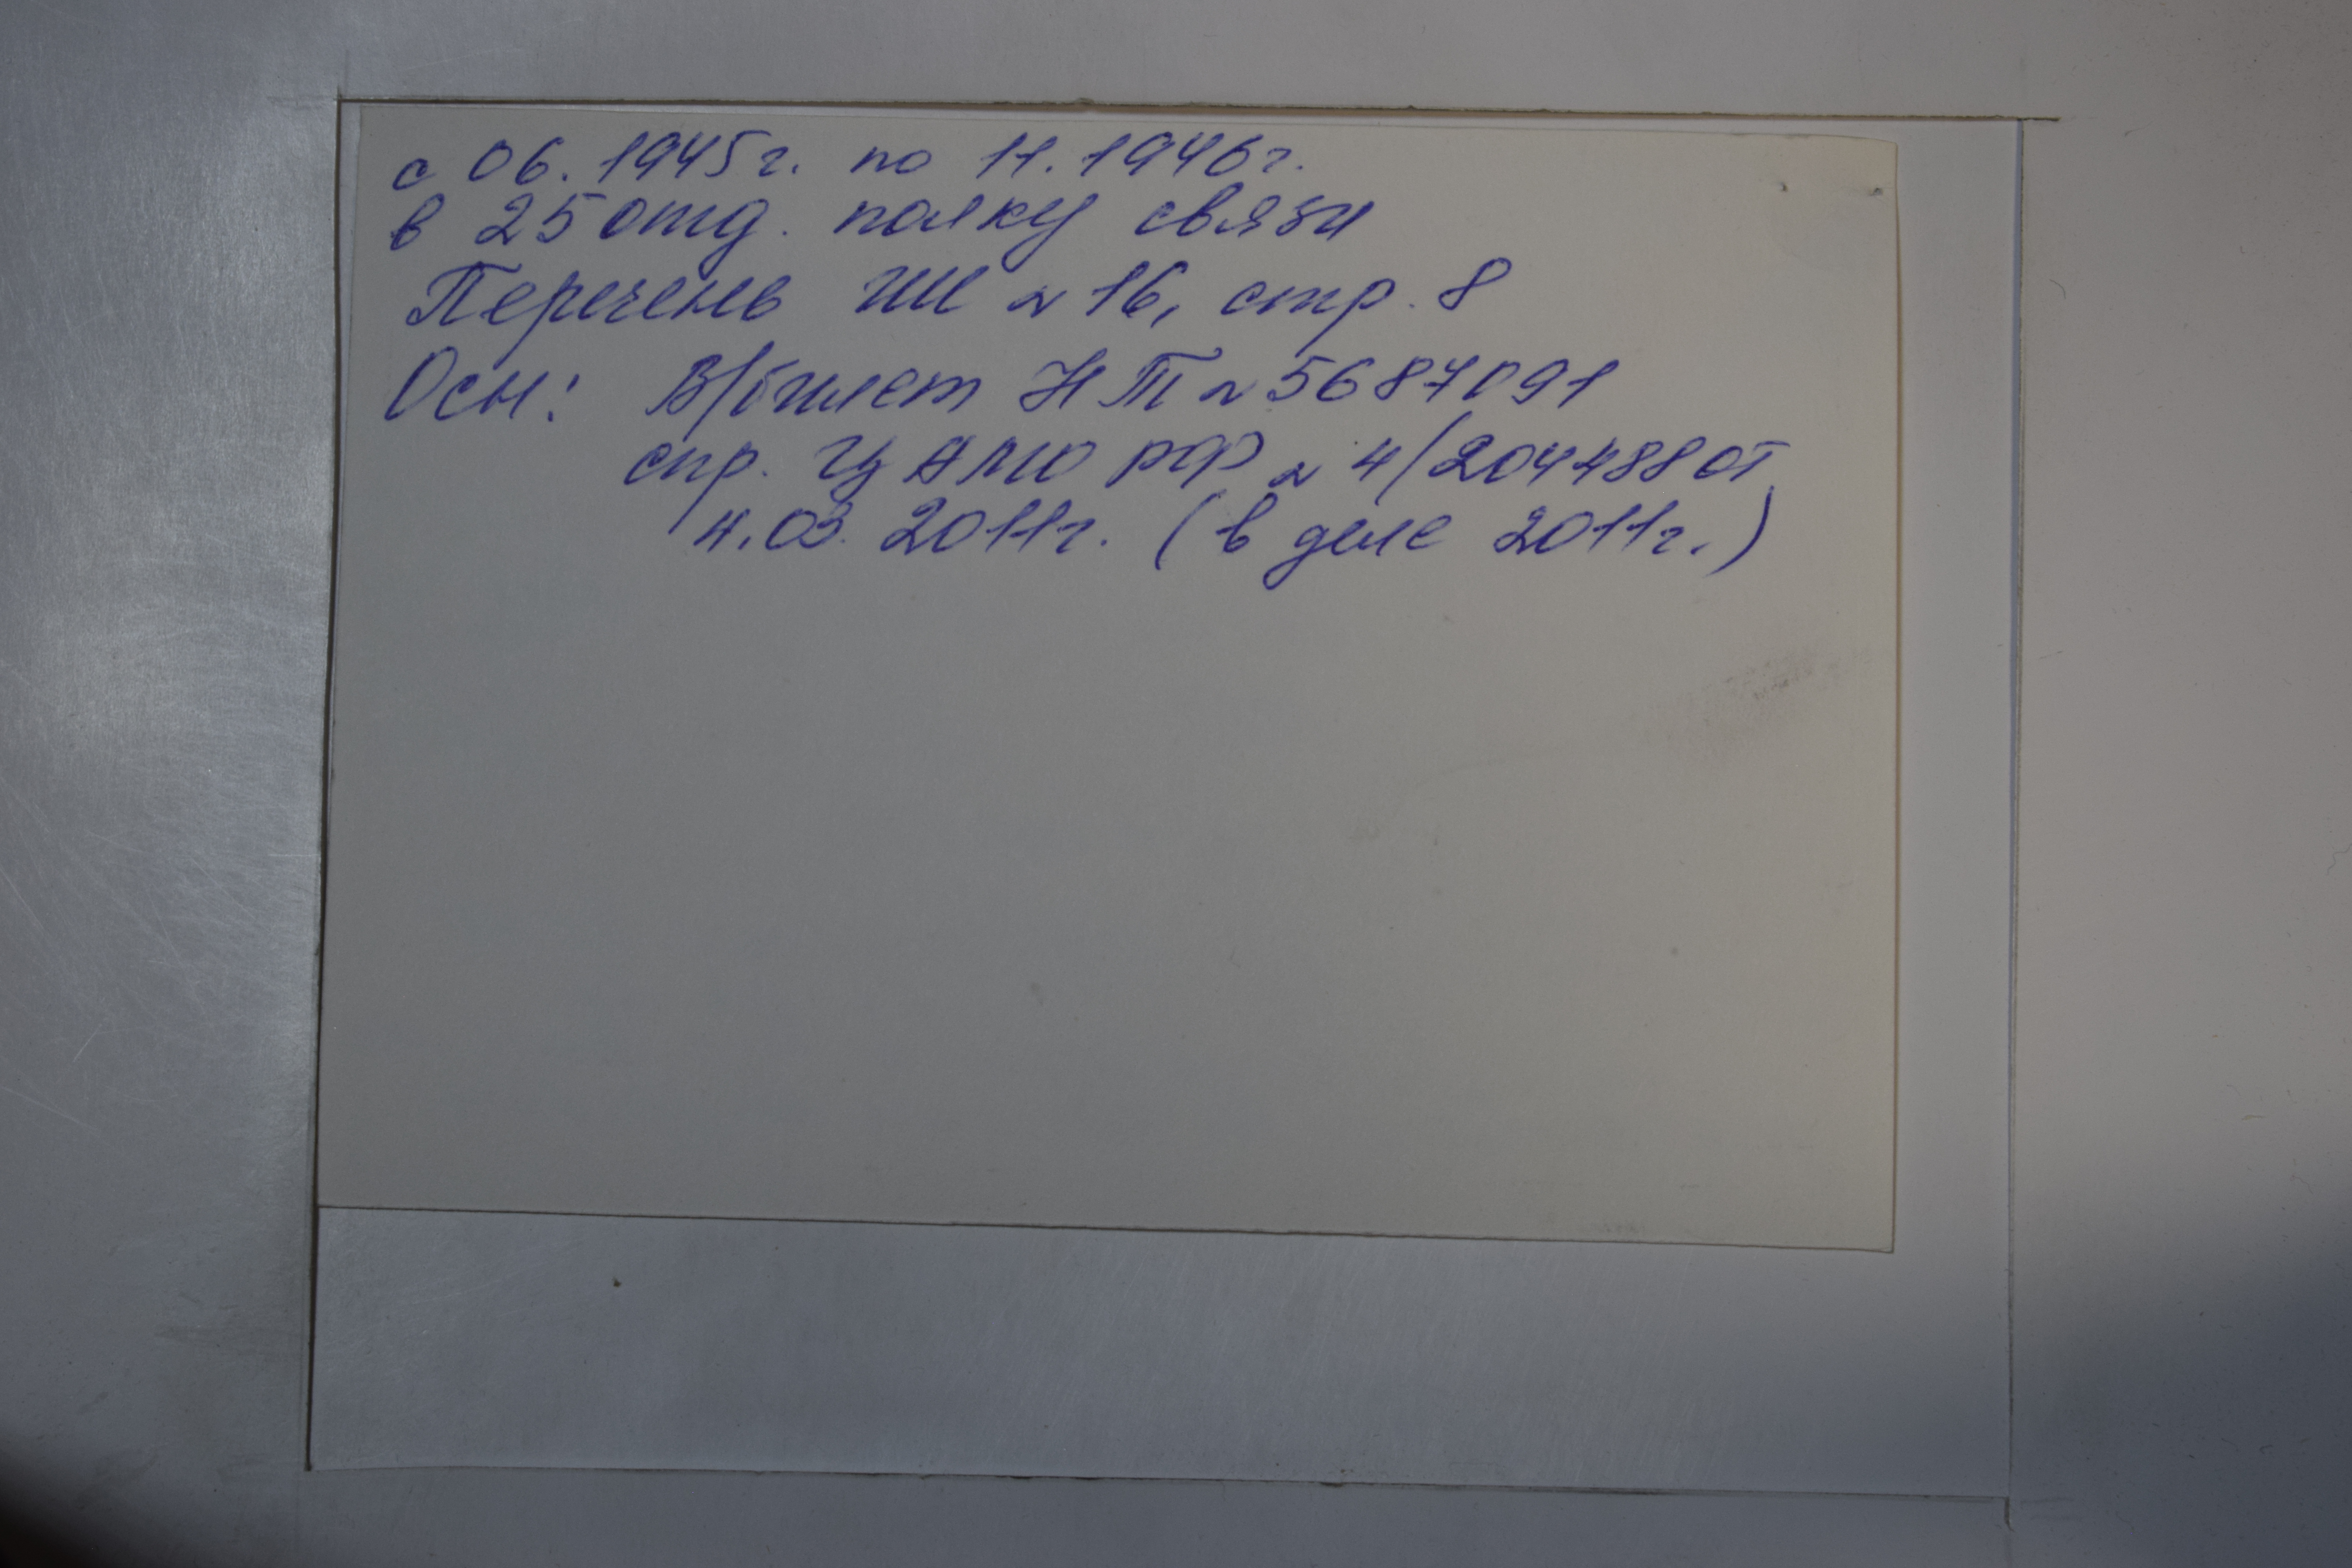 с 06.1945г. по 11.1946г.
в 25 отд. полку связи
Перечень ГШ № 16, стр. 8
Осн: В/билет НП № 5687091
спр. ЦАМО РФ № 4/204488 от
4.03.2011г. (в деле 2011г.)